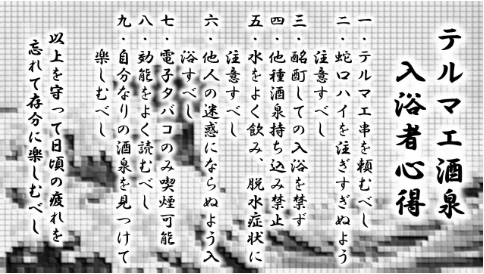 テルマエ酒泉
入浴者心得
一・テルマエ串を頼むべし
二・蛇口ハイを注ぎすぎぬよう
注意すべし
三・酩酊しての入浴を禁ず
四・他種酒泉持ち込み禁止
五・水をよく飲み、脱水症状に
注意すべし
六・他人の迷惑にならぬよう入
浴すべし
七・電子タバコのみ喫煙可能
八・効能をよく読むべし
九・自分なりの酒泉を見つけて
楽しむべし
以上を守って日頃の疲れを
忘れて存分に楽しむべし